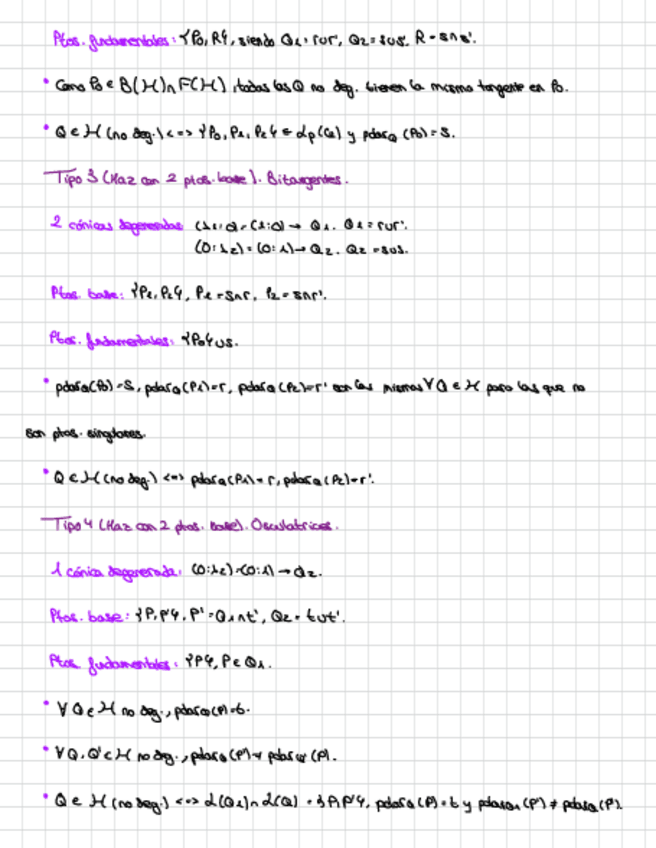 Ptos. fundamentales: {P0, R}, siendo Q1 = r∪r', Q2 = s∪s', R = s∩s'.
• Como P0 ∈ B(H)∩F(H), todas las Q no deg. tienen la misma tangente en P0.
• Q ∈ H (no deg.) <=> {P0, P1, P2} ∈ (Q) y polar_Q (P0) = s.
Tipo 3 (Haz con 2 ptos. base). Bitangentes.
2 cónicas degeneradas: (λ1:0) = (1:0) → Q1. Q1 = r∪r'.
(0:λ2) = (0:1) → Q2. Q2 = s∪s.
Ptos. base: {P1, P2}, P1 = s∩r, P2 = s∩r'.
Ptos. fundamentales: {P0} ∪ s.
• polar_Q(P0) = s, polar_Q(P1) = r, polar_Q(P2) = r' son las mismas ∀ Q ∈ H para las que no
son ptos. singulares.
• Q ∈ H (no deg.) <=> polar_Q(P1) = r, polar_Q(P2) = r'.
Tipo 4 (Haz con 2 ptos. base). Osculatrices.
1 cónica degenerada: (0:λ2) = (0:1) → Q2.
Ptos. base: {P, P'}, P' = Q1∩t', Q2 = t∪t'.
Ptos. fundamentales: {P}, P ∈ Q1.
• ∀ Q ∈ H no deg., polar_Q(P) = t.
• ∀ Q, Q' ∈ H no deg., polar_Q (P') ≠ polar_Q' (P').
• Q ∈ H (no deg.) <=> L(Q1) ∩ L(Q) = {P, P'}, polar_Q (P) = t y polar_Q1 (P') ≠ polar_Q (P').